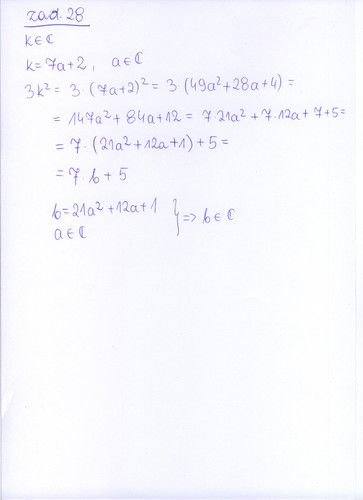 zad. 28
k∈ℂ
k=7a+2, a∈ℂ
3k²= 3·(7a+2)²= 3·(49a²+28a+4)=
= 147a²+84a+12= 7·21a²+7·12a+7+5=
= 7·(21a²+12a+1)+5=
= 7·b+5
b=21a²+12a+1
a∈ℂ } => b∈ℂ